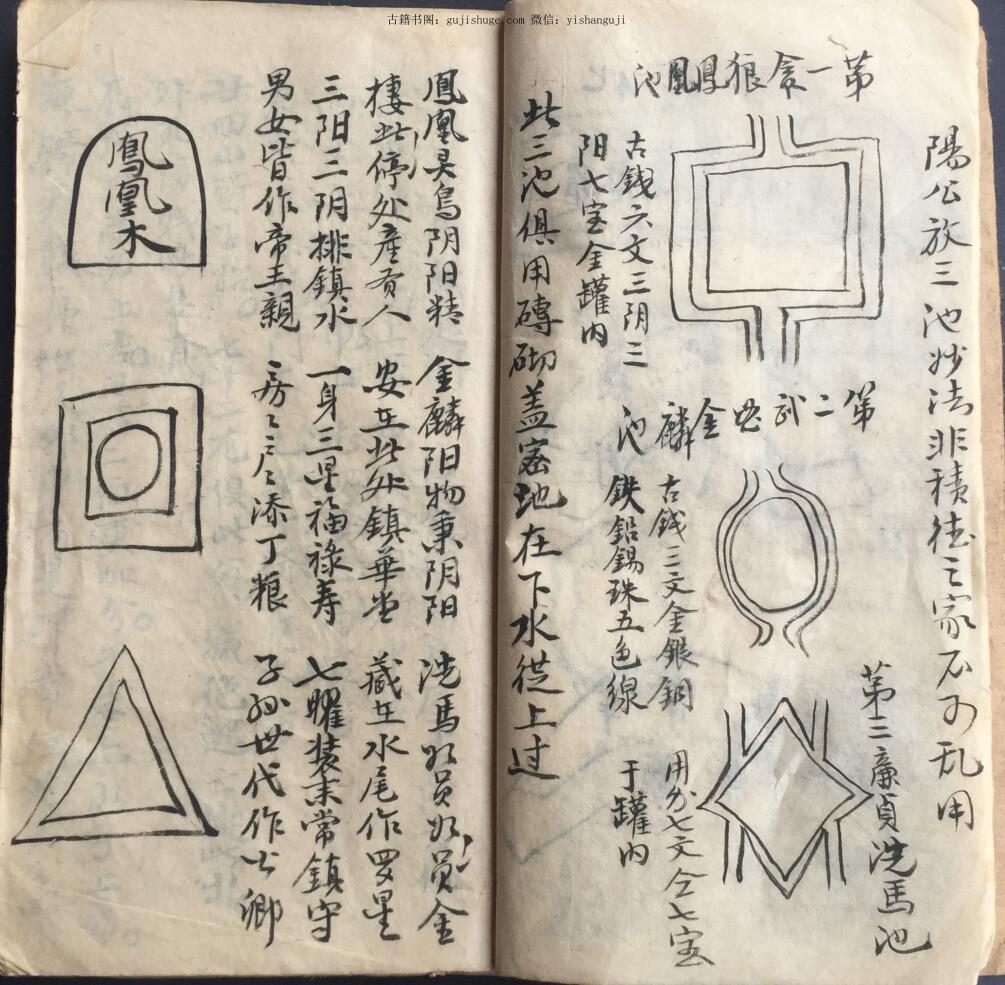 古籍书阁：gujishuge.com 微信：yishanguji
陽公放三池妙法非積德之家不可乱用
第一貪狼鳳凰池
古錢六文三阴三
阳七宝金罐内
第二武曲金麟池
古錢三文金銀銅
鉄鉛錫珠五色線
第三廉貞洗馬池
用 七文仝七宝
于罐内
此三池俱用磚砌盖密地在下水從上过
鳳凰灵鳥阴阳精
棲此停处產贵人
三阳三阴排鎮水
男女皆作帝王親
金麟阳物秉阴阳
安在此处鎮華堂
一身三星福禄寿
房〻户〻添丁粮
洗馬如員如員金
藏在水尾作罗星
七曜装束常鎮守
子孙世代作公卿
鳳凰木